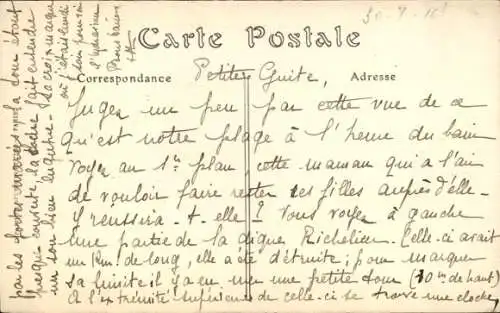 30-7-15
Carte Postale
Correspondance
Adresse
Petite Guite,
Jugez un peu par cette vue de ce
qu'est notre plage à l'heure du bain
Voyez au 1er plan, cette maman qui a l'air
de vouloir faire rester ses filles auprès d'elle.
Y reussira-t-elle? Vous voyez à gauche
une partie de la digue Richelieu. Celle-ci avait
un Km. de long, elle a été détruite; pour marquer
sa limite il y a eu une petite tour (10m de haut)
A l'extrémité supérieure de celle-ci se trouve une cloche
par les fortes marées la dour était
presque la faire entendre
un son lugubre - La croix marque
où j'étais lundi